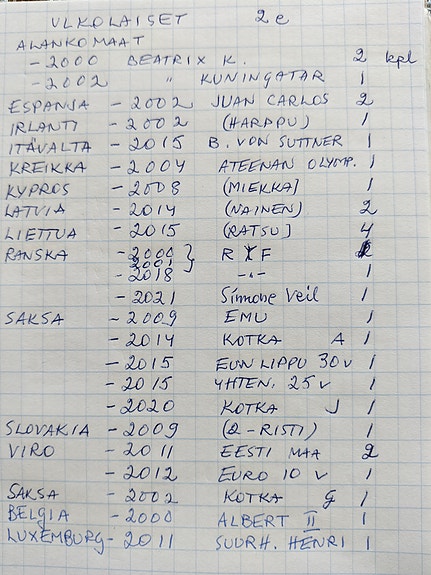 ULKOLAISET 2 e
ALANKOMAAT
- 2000 BEATRIX K. 2 kpl
- 2002 " KUNINGATAR 1
ESPANJA - 2002 JUAN CARLOS 2
IRLANTI - 2002 (HARPPU) 1
ITÄVALTA - 2015 B. VON SUTTNER 1
KREIKKA - 2004 ATEENAN OLYMP. 1
KYPROS - 2008 (MIEKKA) 1
LATVIA - 2014 (NAINEN) 2
LIETTUA - 2015 (RATSU) 4
RANSKA - 2000 } R F 2
2001
- 2018 -"- 1
- 2021 Simone Veil 1
SAKSA - 2009 EMU 1
- 2014 KOTKA A 1
- 2015 EUN LIPPU 30 v 1
- 2015 YHTEN. 25 v 1
- 2020 KOTKA J 1
SLOVAKIA - 2009 (2-RISTI) 1
VIRO - 2011 EESTI MAA 2
- 2012 EURO 10 v 1
SAKSA - 2002 KOTKA G 1
BELGIA - 2000 ALBERT II 1
LUXEMBURG - 2011 SUURH. HENRI 1